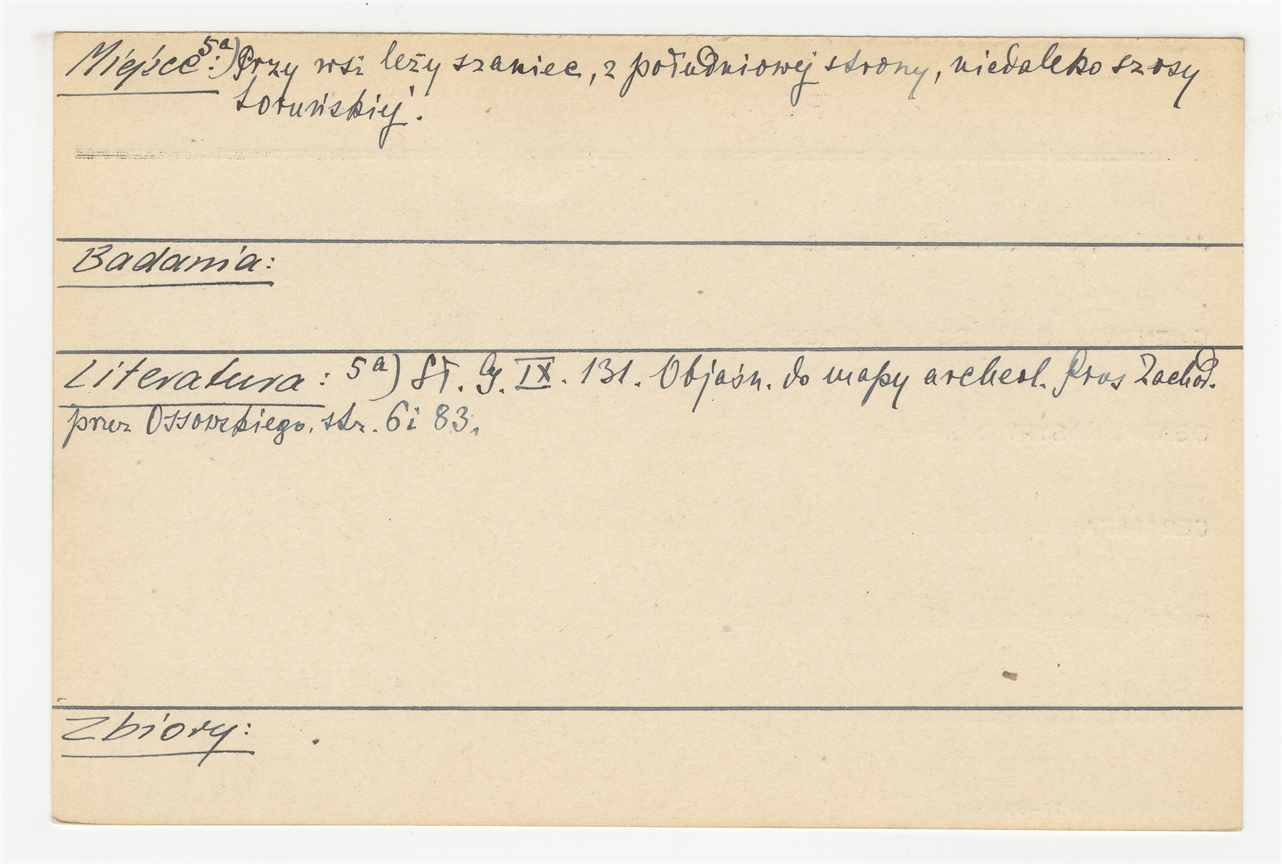 Miejsce: 5a) Przy wsi leży szaniec, z południowej strony, niedaleko szosy
toruńskiej.
Badania:
Literatura: 5a) Sł. G. IX. 131. Objaśn. do mapy archeol. Prus Zachod.
przez Ossowskiego. str. 6 i 83.
Zbiory: